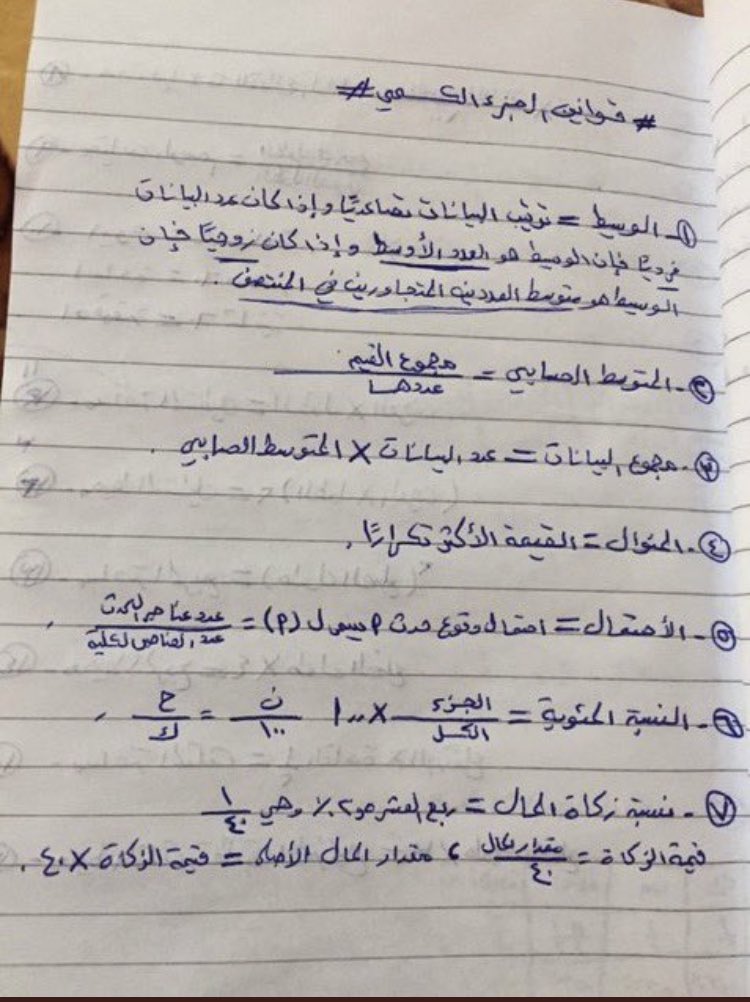 # قوانين الجزء الكمي #
١- الوسيط = ترتيب البيانات تصاعديًا وإذا كان عدد البيانات
فرديًا فإن الوسيط هو العدد الأوسط وإذا كان زوجيًا فإن
الوسيط هو متوسط العددين المتجاورين في المنتصف .
٢- المتوسط الحسابي = مجموع القيم / عددها
٣- مجموع البيانات = عدد البيانات × المتوسط الحسابي .
٤- المنوال = القيمة الأكثر تكرارًا .
٥- الأحتمال = احتمال وقوع حدث م ل (م) = عدد عناصر الحدث / عدد العناصر الكلية .
٦- النسبة المئوية = الجزء / الكل × ١٠٠ ن / ١٠٠ = ج / ك
٧- نسبة زكاة المال = ربع العشر ٪ وهي ١ / ٤٠
قيمة الزكاة = مقدار المال / ٤٠ ، مقدار المال الأصلي = قيمة الزكاة × ٤٠ .